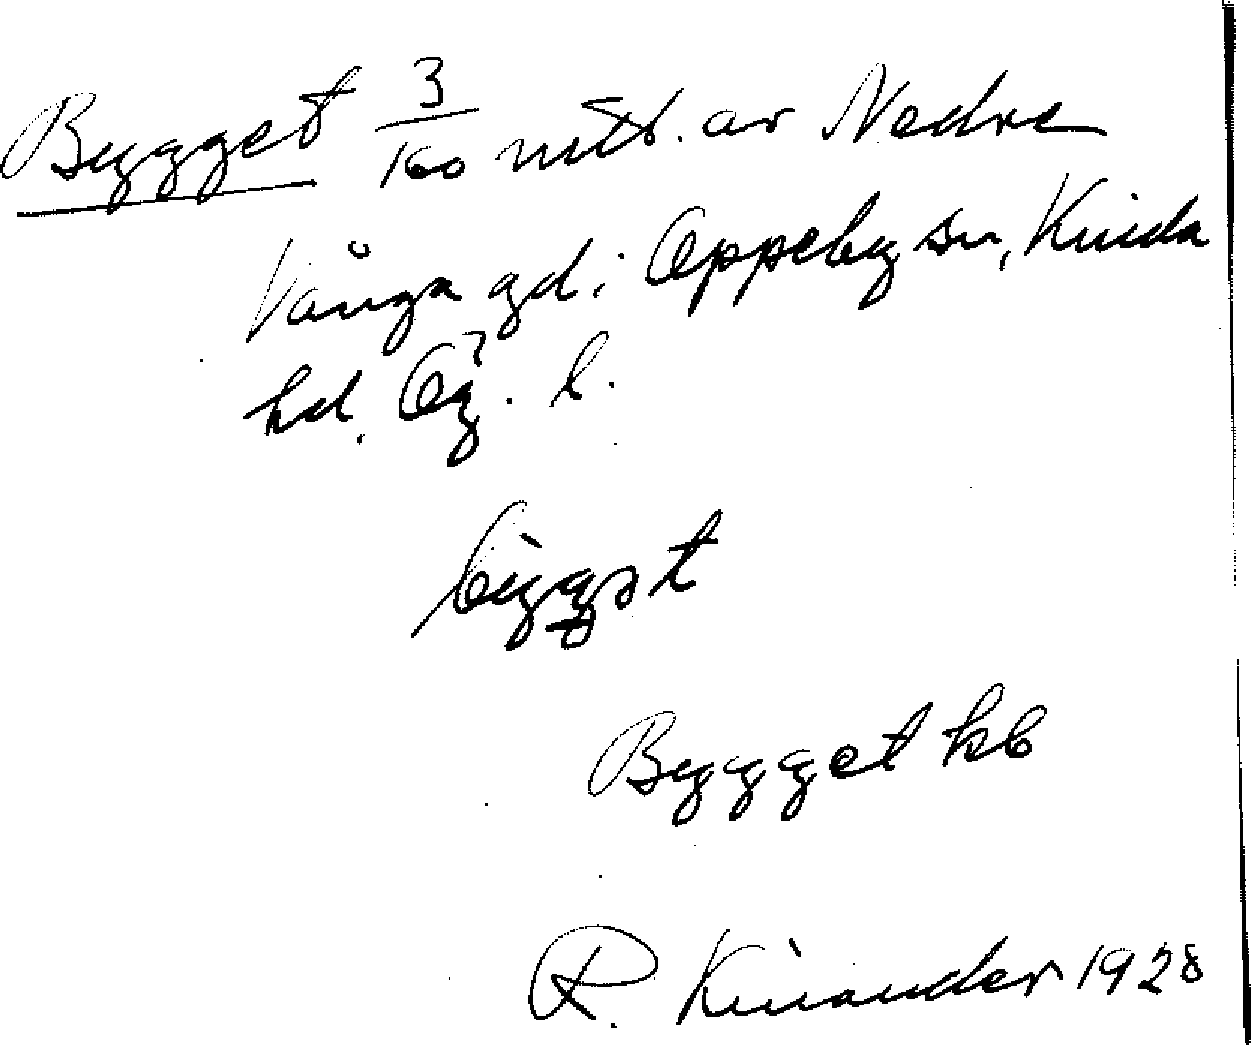 Bygget 3/160 mtl. av Nedre
Vånga gd i Oppeby sn, Kinda
hd. Ög. l.
byggət
Bygget kb
R. Kinander 1928